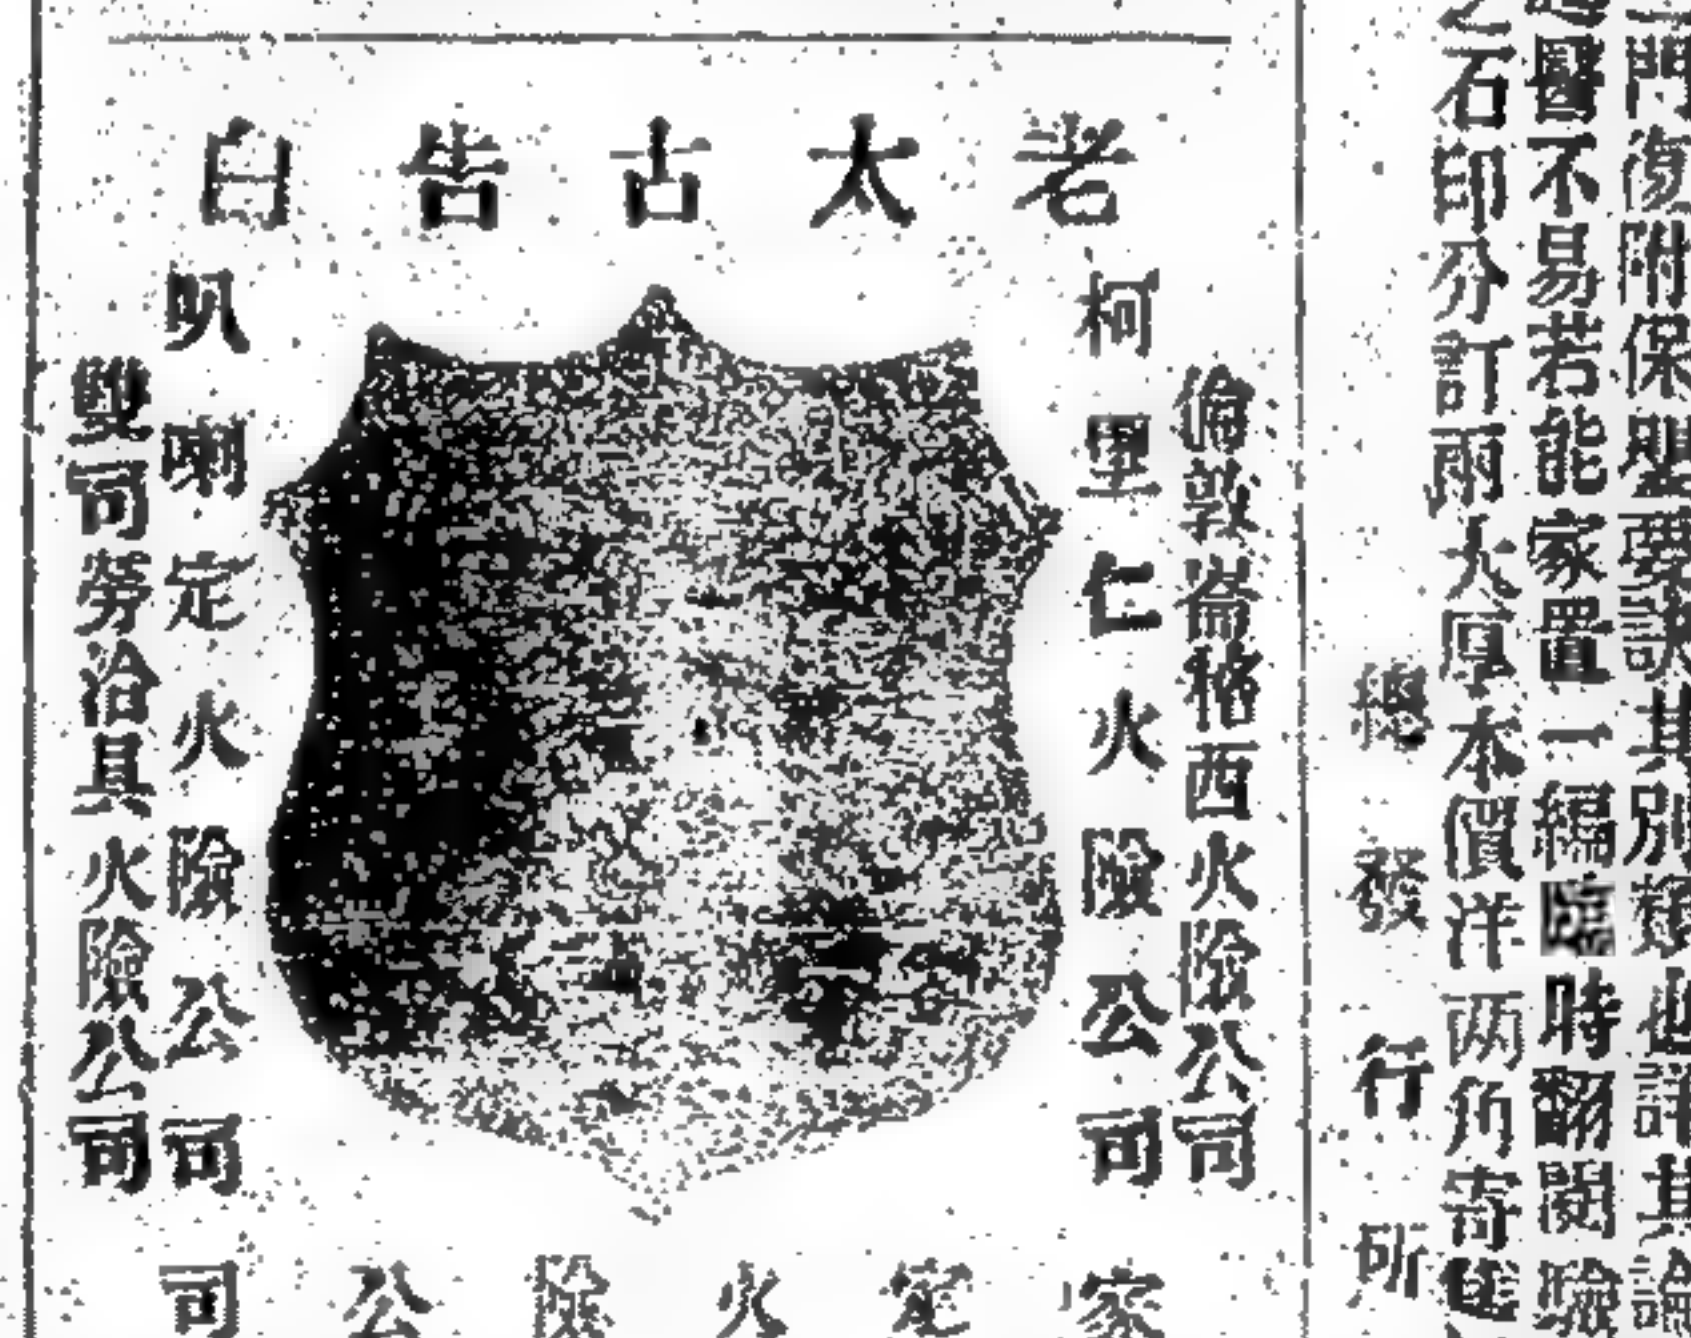 門復附保嬰要訣其別類也詳其論
醫不易若能家置一編臨時翻閱驗
之石印分訂兩大厚本價洋两角寄
總發行所
老太古告白
倫敦崙稽西火險公司
柯里仁火險公司
叭喇定火險公司
雙司勞洽具火險公司
家定火險公司